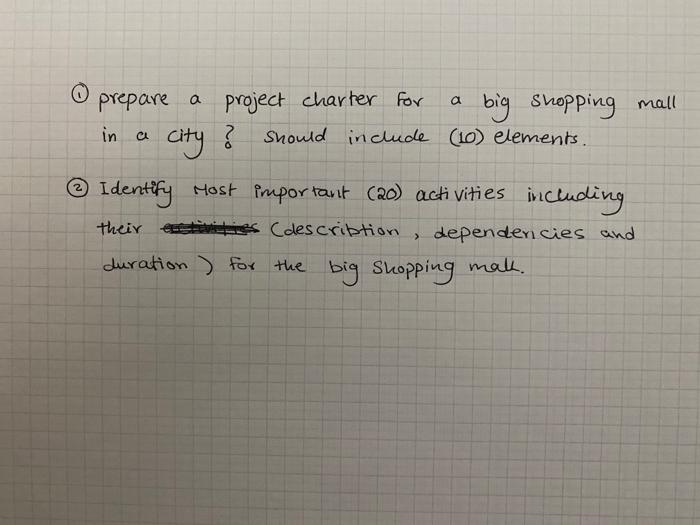 ① prepare a project charter for a big shopping mall
in a city ? should include (10) elements.
② Identify Most important (20) activities including
their activities (describtion, dependencies and
duration) for the big shopping mall.